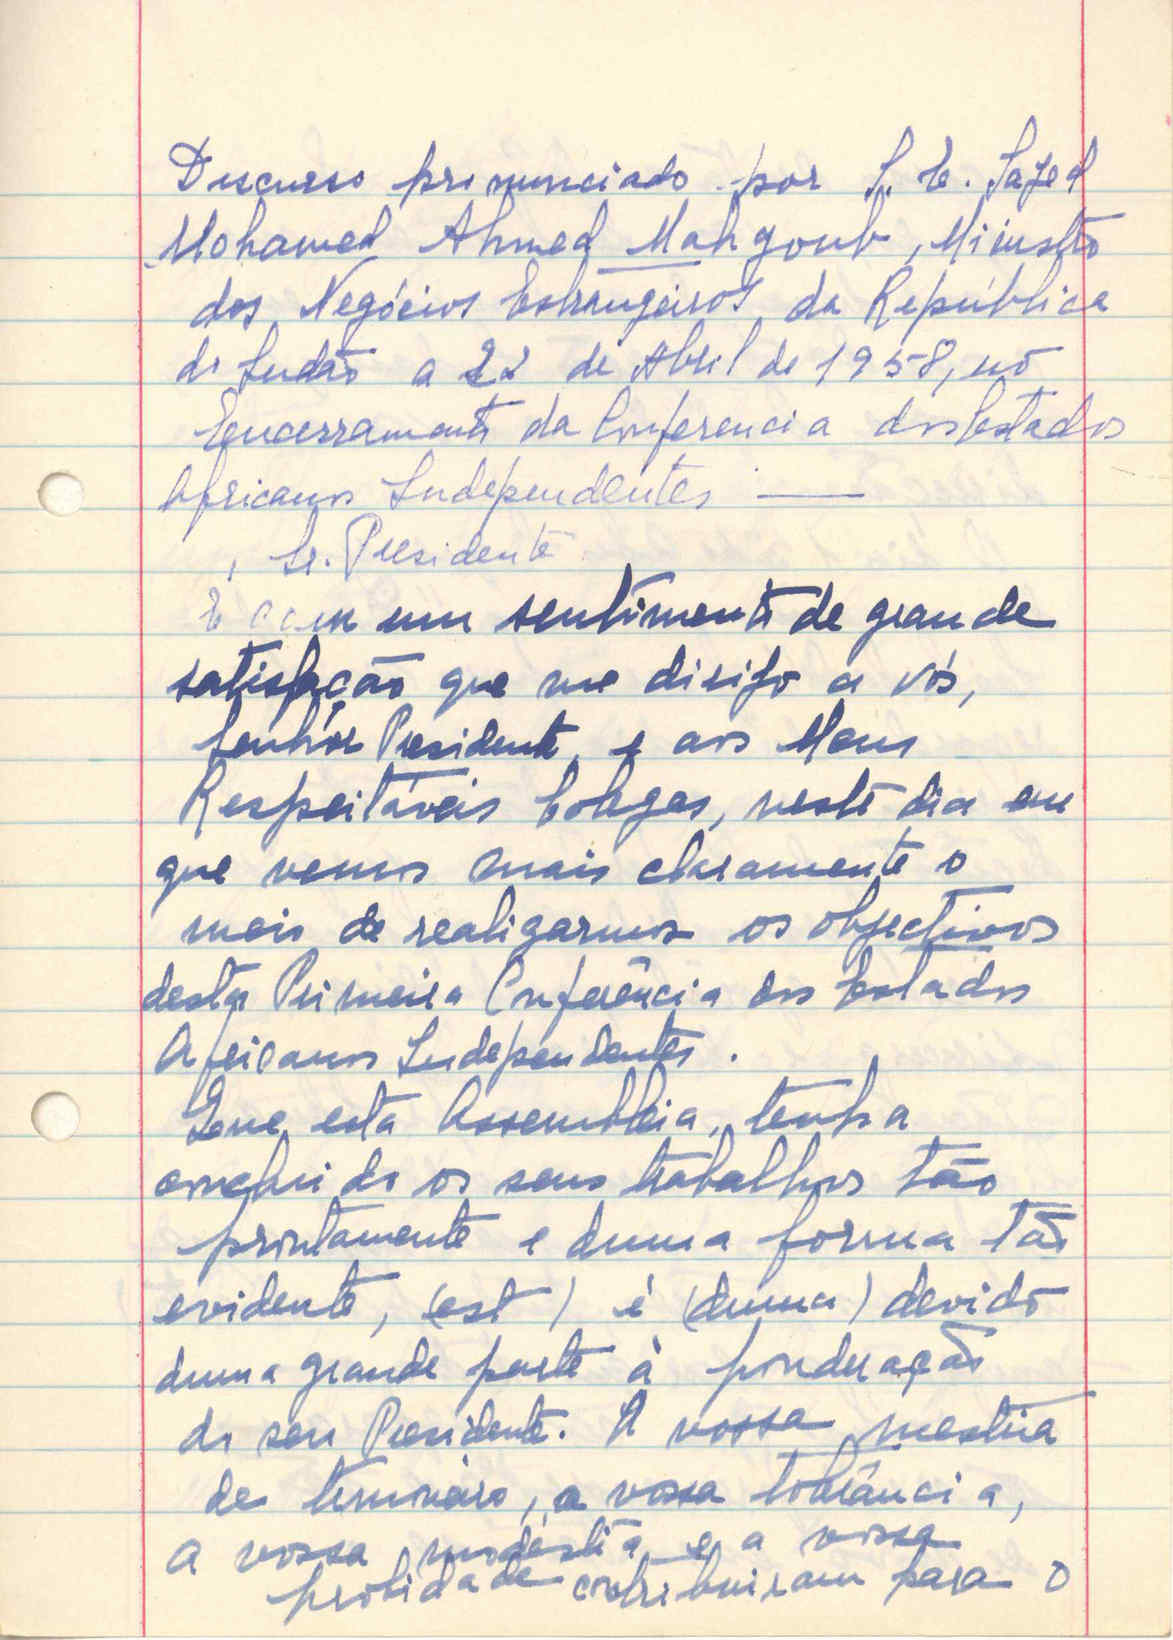 Discurso pronunciado por S. E. Sayed
Mohamed Ahmed Mahgoub, Ministro
dos Negócios Estrangeiros da República
do Sudão a 22 de Abril de 1958, no
Encerramento da Conferencia dos Estados
Africanos Independentes ——
Sr. Presidente
É com um sentimento de grande
satisfação que me dirijo a vós,
Senhor Presidente, e aos Meus
Respeitáveis Colegas, neste dia em
que vemos mais claramente o
meio de realizarmos os objectivos
desta Primeira Conferência dos Estados
Africanos Independentes.
Que esta Assembleia, tenha
concluido os seus trabalhos tão
prontamente e duma forma tão
evidente, (est ) é (duma) devido
duma grande parte à ponderação
do seu Presidente. A vossa mestria
de, a vossa tolerância,
a vossa modéstia e a vossa
probidade contribuiram para o